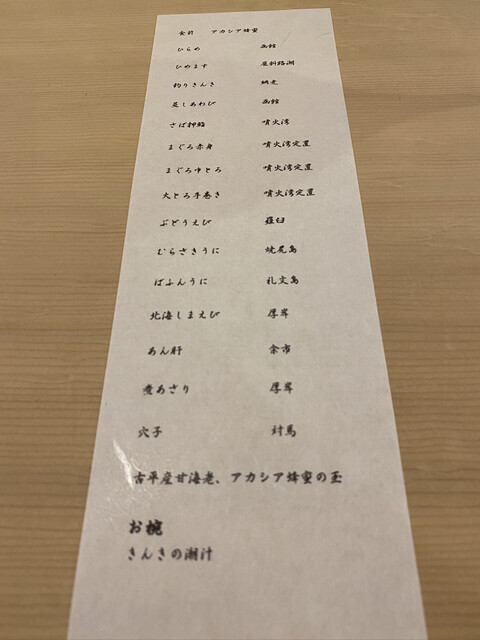 食前 アカシア蜂蜜
ひらめ 函館
ひめます 屈斜路湖
釣りきんき 網走
蒸しあわび 函館
さば押鮨 噴火湾
まぐろ赤身 噴火湾定置
まぐろ中とろ 噴火湾定置
大とろ手巻き 噴火湾定置
ぶどうえび 羅臼
むらさきうに 焼尻島
ばふんうに 礼文島
北海しまえび 厚岸
あん肝 余市
煮あさり 厚岸
穴子 対馬
古平産甘海老、アカシア蜂蜜の玉
お椀
きんきの潮汁